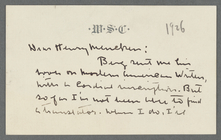 W·S·C·
1926
Dear Henry Mencken:
Berg sent me his
book on modern American Writers,
with a cordial inscription. But
so far I've not been able to find
a translator. When I do, I'll